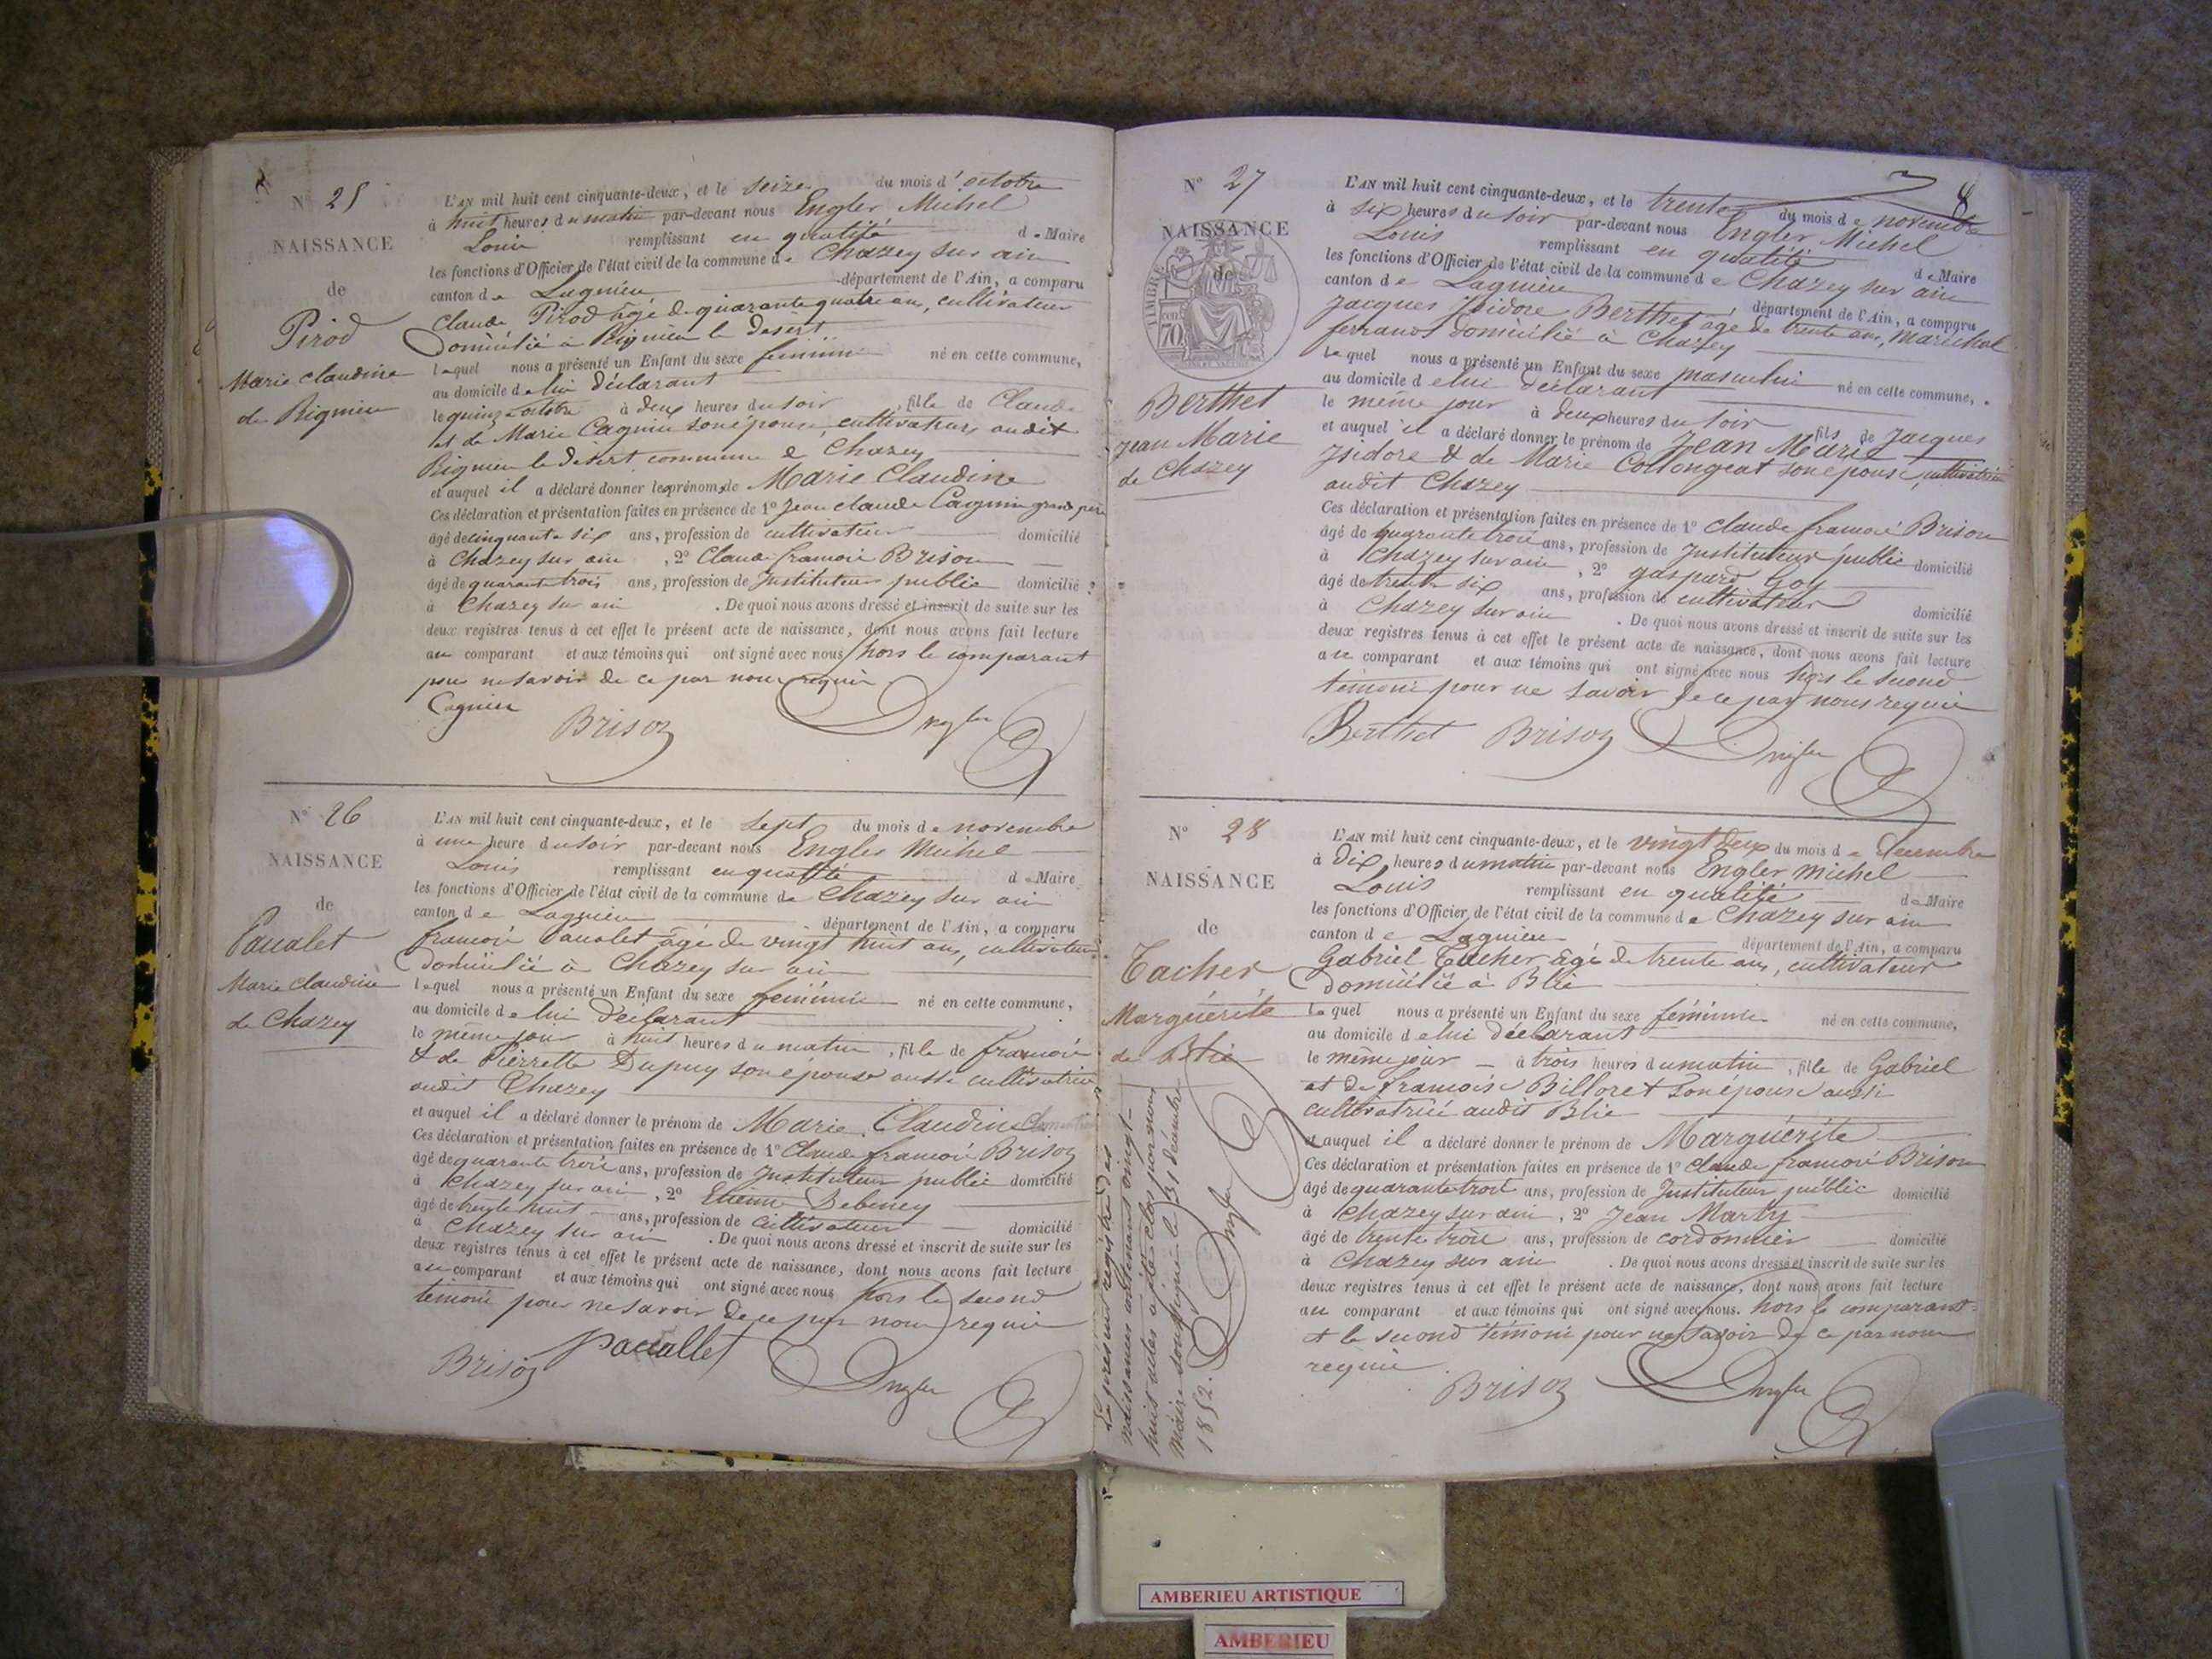 N° 25
NAISSANCE
de
Pirod
Marie Claudine
de Rignieu
L'AN mil huit cent cinquante-deux, et le seize du mois d'octobre
à huit heures du matin par-devant nous Engler Michel
Louis remplissant en qualité de Maire
les fonctions d'Officier de l'état civil de la commune de Chazey sur ain
canton de Lagnieu département de l'Ain, a comparu
Claude Pirod âgé de quarante quatre ans, cultivateur
Domicilié à Rignieu le desert
lequel nous a présenté un Enfant du sexe féminin né en cette commune,
au domicile de lui déclarant
le quinze octobre à deux heures du soir, fille de Claude
et de Marie Cagnin son épouse, cultivateurs audit
Rignieu le désert commune de Chazey
et auquel il a déclaré donner les prénoms de Marie Claudine
Ces déclaration et présentation faites en présence de 1° Jean Claude Cagnin grand père
âgé de cinquante six ans, profession de cultivateur domicilié
à Chazey sur ain, 2° Claude françois Brison
âgé de quarante trois ans, profession de Instituteur public domicilié
à Chazey sur ain. De quoi nous avons dressé et inscrit de suite sur les
deux registres tenus à cet effet le présent acte de naissance, dont nous avons fait lecture
au comparant et aux témoins qui ont signé avec nous hors le comparant
pour ne savoir de ce par nous requis
Cagnin Brison Engler
N° 26
NAISSANCE
de
Paualet
Marie Claudine
de Chazey
L'AN mil huit cent cinquante-deux, et le sept du mois de novembre
à une heure du soir par-devant nous Engler Michel
Louis remplissant en qualité de Maire
les fonctions d'Officier de l'état civil de la commune de Chazey sur ain
canton de Lagnieu département de l'Ain, a comparu
françois Paualet âgé de vingt huit ans, cultivateur
Domicilié à Chazey sur ain
lequel nous a présenté un Enfant du sexe féminin né en cette commune,
au domicile de lui déclarant
le même jour à huit heures du matin, fille de françois
& de Pierrette Dupuy son epouse aussi cultivatrice
audit Chazey
et auquel il a déclaré donner le prénom de Marie Claudine
Ces déclaration et présentation faites en présence de 1° Claude françois Brison
âgé de quarante trois ans, profession de Instituteur public domicilié
à Chazey sur ain, 2° Etienne Debeney
âgé de trente huit ans, profession de cultivateur domicilié
à Chazey sur ain. De quoi nous avons dressé et inscrit de suite sur les
deux registres tenus à cet effet le présent acte de naissance, dont nous avons fait lecture
au comparant et aux témoins qui ont signé avec nous hors le second
témoin pour ne savoir de ce par nous requis
Brison Pacuallet Engler
8
N° 27
NAISSANCE
de
TIMBRE
70
Berthet
Jean Marie
de Chazey
L'AN mil huit cent cinquante-deux, et le trente du mois de novembre
à six heures du soir par-devant nous Engler Michel
Louis remplissant en qualité de Maire
les fonctions d'Officier de l'état civil de la commune de Chazey sur ain
canton de Lagnieu département de l'Ain, a comparu
Jacques Isidore Berthet âgé de trente ans, Maréchal
ferrand domicilié à Chazey
lequel nous a présenté un Enfant du sexe masculin né en cette commune,
au domicile de lui déclarant
le même jour à deux heures du soir fils de Jacques
et auquel il a déclaré donner le prénom de Jean Marie
Isidore & de Marie Collongeat son épouse, cultivatrice
audit Chazey
Ces déclaration et présentation faites en présence de 1° Claude françois Brison
âgé de quarante trois ans, profession de Instituteur public domicilié
à Chazey sur ain, 2° gaspard Goy
âgé de trente six ans, profession de cultivateur domicilié
à Chazey sur ain. De quoi nous avons dressé et inscrit de suite sur les
deux registres tenus à cet effet le présent acte de naissance, dont nous avons fait lecture
au comparant et aux témoins qui ont signé avec nous hors le second
témoin pour ne savoir de ce par nous requis
Berthet Brison Engler
N° 28
NAISSANCE
de
Tacher
Marguérite
de Blie
L'AN mil huit cent cinquante-deux, et le vingt deux du mois de decembre
à dix heures du matin par-devant nous Engler Michel
Louis remplissant en qualité de Maire
les fonctions d'Officier de l'état civil de la commune de Chazey sur ain
canton de Lagnieu département de l'Ain, a comparu
Gabriel Tacher âgé de trente ans, cultivateur
domicilié à Blie
lequel nous a présenté un Enfant du sexe féminin né en cette commune,
au domicile de lui déclarant
le même jour à trois heures du matin, fille de Gabriel
et de françoise Billoret son épouse aussi
cultivatrice audit Blie
et auquel il a déclaré donner le prénom de Marguérite
Ces déclaration et présentation faites en présence de 1° Claude françois Brison
âgé de quarante trois ans, profession de Instituteur public domicilié
à Chazey sur ain, 2° Jean Marty
âgé de trente trois ans, profession de cordonnier domicilié
à Chazey sur ain. De quoi nous avons dressé et inscrit de suite sur les
deux registres tenus à cet effet le présent acte de naissance, dont nous avons fait lecture
au comparant et aux témoins qui ont signé avec nous. hors le comparant
et le second témoin pour ne savoir de ce par nous
requis
Brison Engler
Le présent registre des
naissances contenant vingt-
huit actes a été clos par nous
Maire soussigné le 31 décembre
1852. Engler
AMBERIEU ARTISTIQUE
AMBERIEU